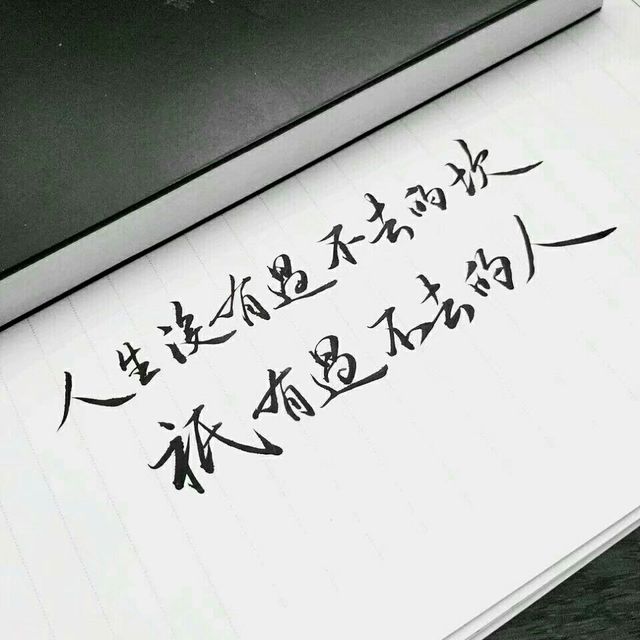 人生没有過不去的坎
祇有過不去的人